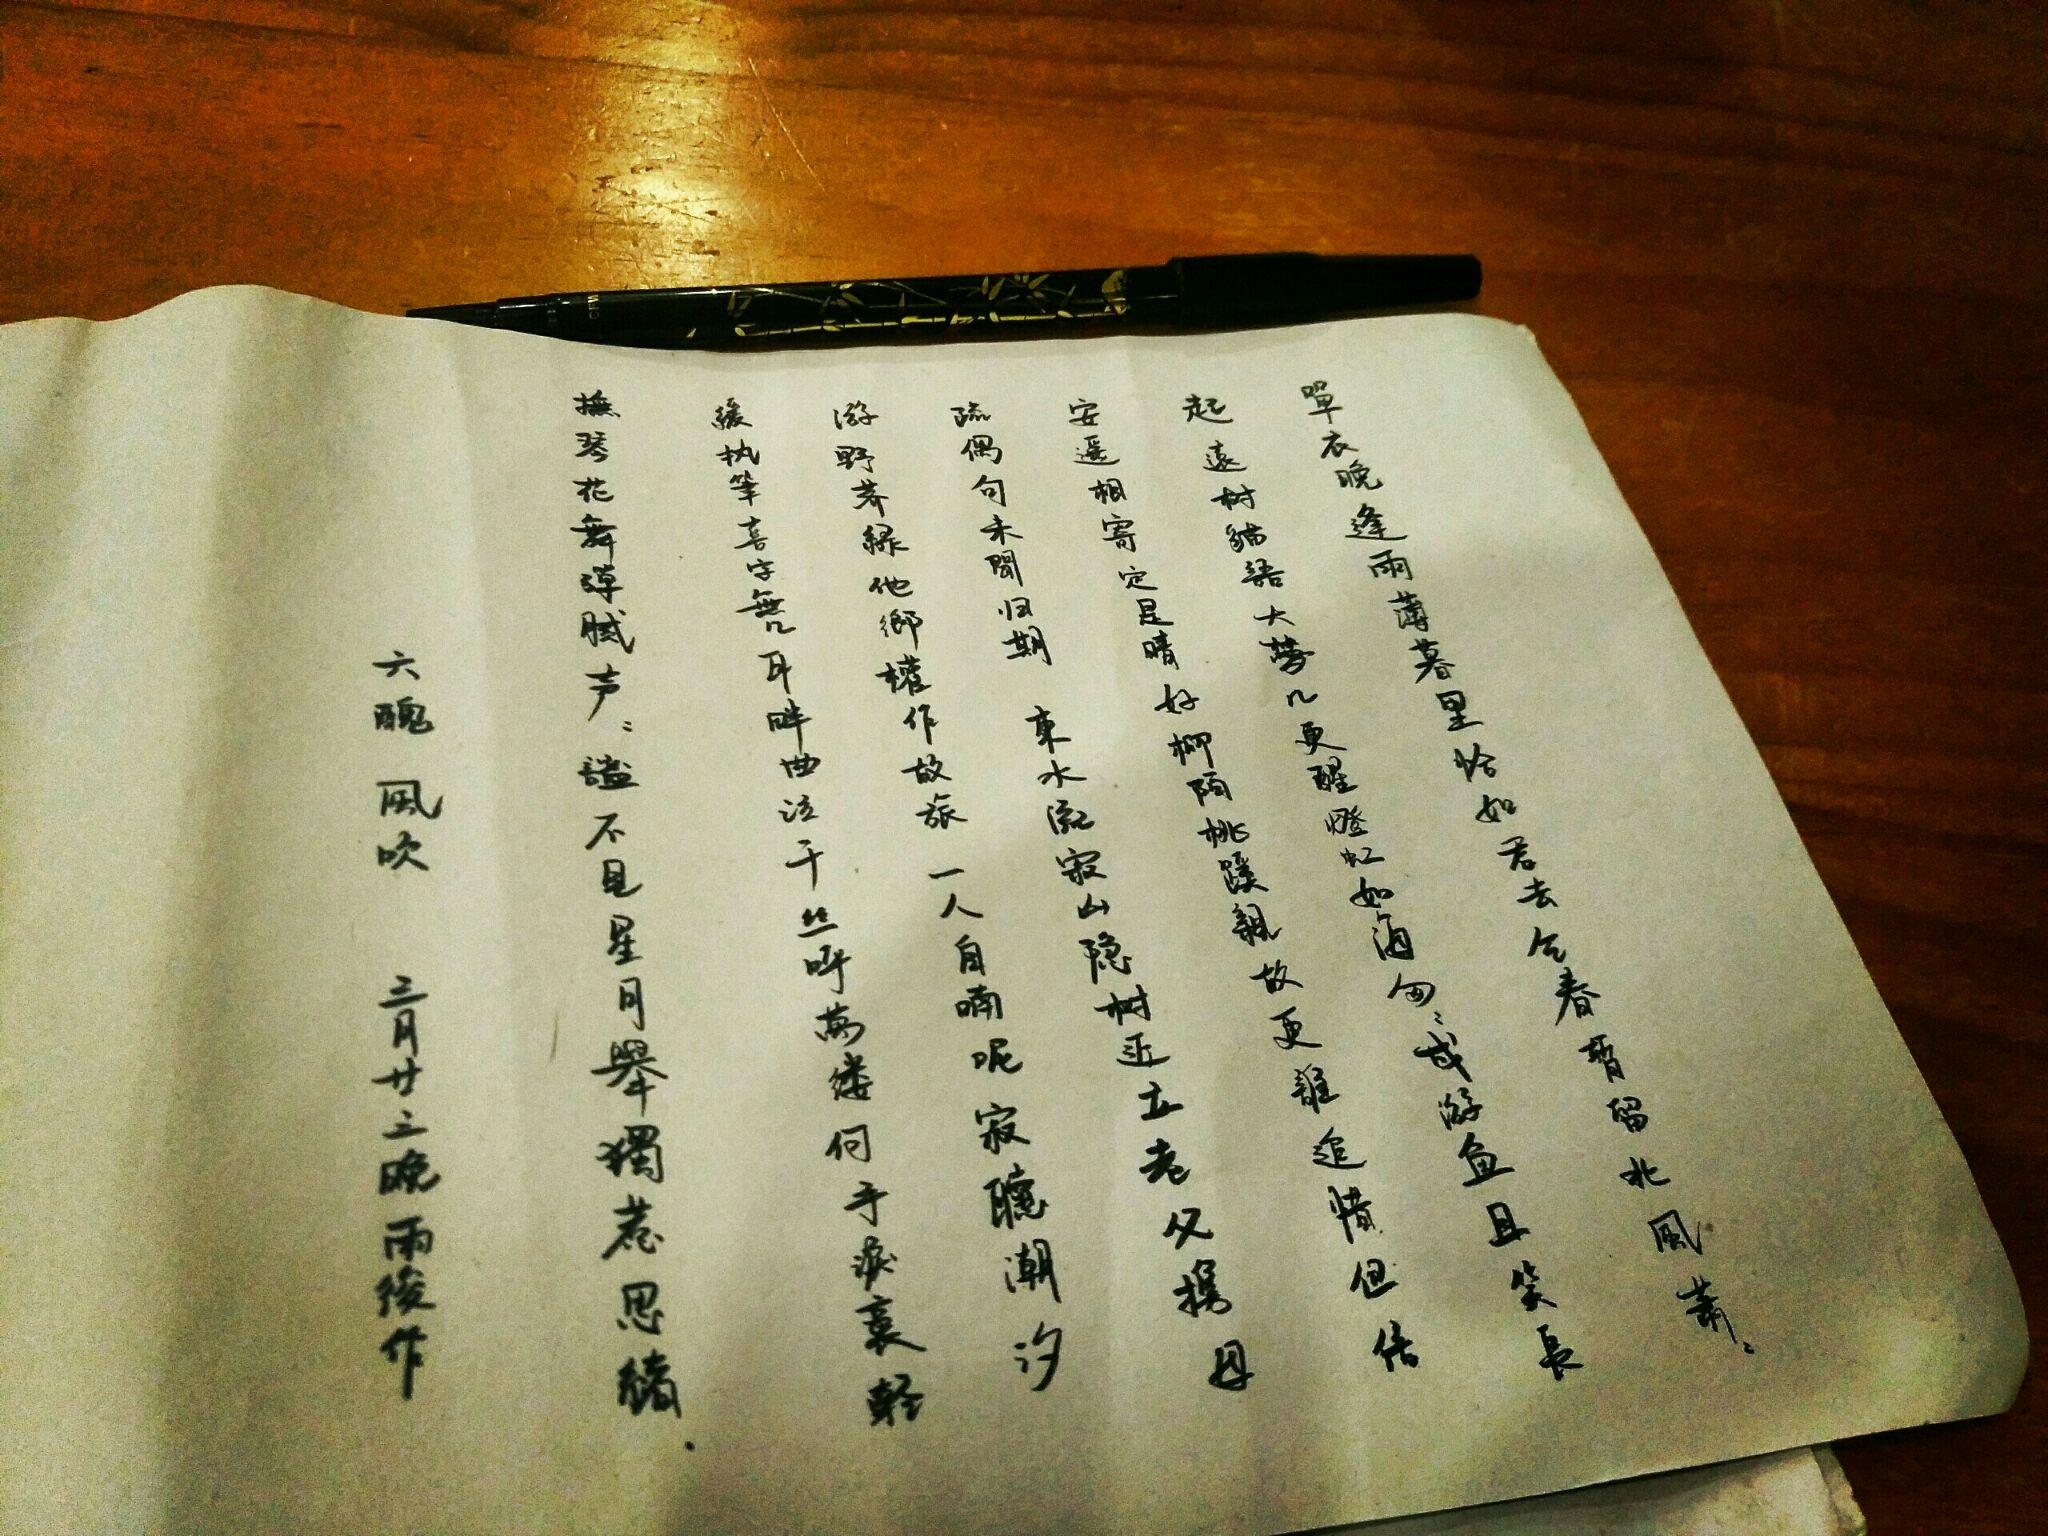 單衣晚逢雨薄暮里恰如君去乞春暫留北風蕭〻
起遠树貓語大夢几更醒燈虹如酒匆〻或游鱼且笑長
安遥相寄定是晴好柳陌桃蹊親故更難追惜但倚
疏偶句未聞归期 東水流寂山隐树近立老父携母
游野荞綠他鄉權作故旅 一人自喃呢寂聽潮汐
緩执筆喜字無几耳畔曲泣千丝呼萬缕何手淚衰輕
撫琴花舞弹膩声〻谧不見星月舉獨惹思緒.
六醜 風吹 三月廿三晚雨後作